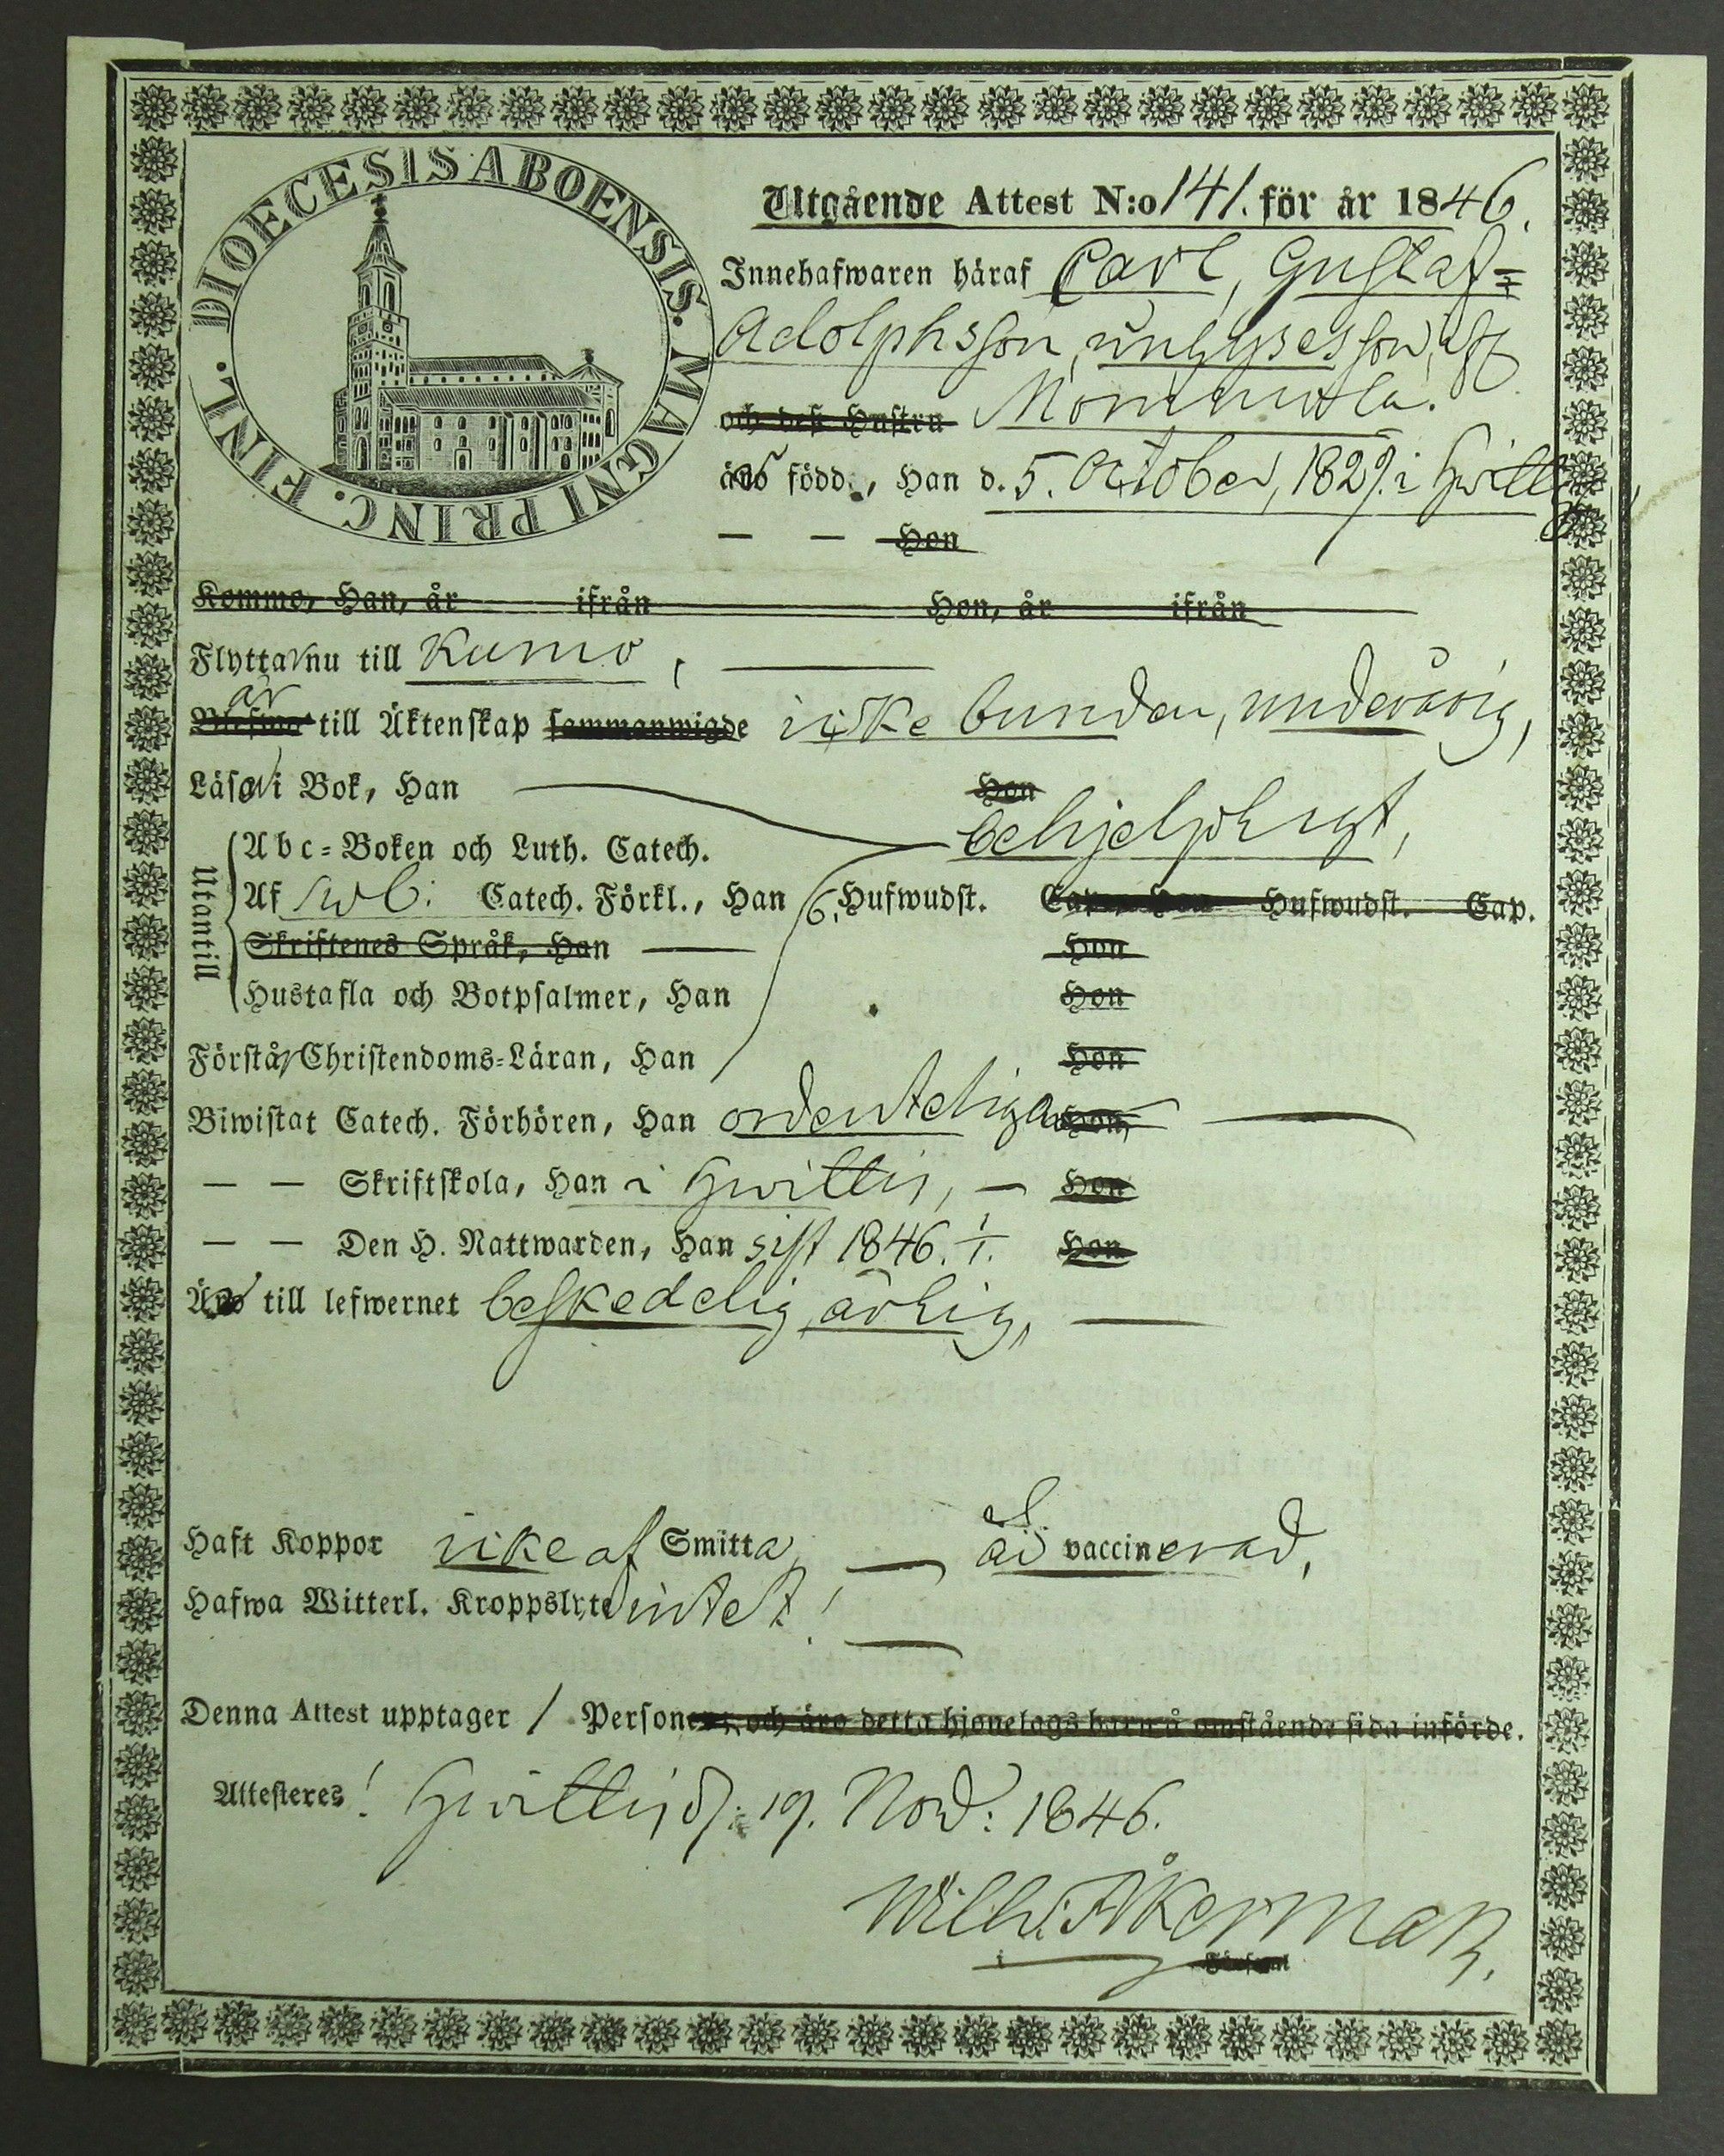 DIOECESIS ABOENSIS. MAGNI PRINC. FINL.
Utgående Attest N:o 141. för år 1846.
Innehafwaren häraf Carl, Gustaf=
Adolphsson,
och deß Hustru
är född, Han d. 5. October, 1829. i Hwittis
— — Hon
Kommo, Han, år ifrån Hon, år ifrån
Flyttar nu till Kumo,
är till Äktenskap sammanwigde icke bunden, underårig,
Läser i Bok, Han Hon
Utantill
Abc-Boken och Luth. Catech. behjelpligt,
Af Swb: Catech. Förkl., Han 6. Hufwudst. Cap., Hon Hufwudst. Cap.
Skriftenes Språk, Han Hon
Hustafla och Botpsalmer, Han Hon
Förstår Christendoms-Läran, Han Hon
Biwistat Catech. Förhören, Han ordenteligen Hon,
— — Skriftskola, Han i Hwittis, — Hon
— — Den H. Nattwarden, Han sist 1846. 1/1. Hon
Är till lefwernet beskedelig, ärlig,
Haft Koppor icke af Smitta, — är vaccinerad,
Hafwa Witterl. Kroppslyte intet!
Denna Attest upptager 1 Personer, och äro detta hjonelags barn å omstående sida införde.
Attesteres! Hwittis d: 19. Nov: 1846.
Wilh: Åkerman.
i Församl